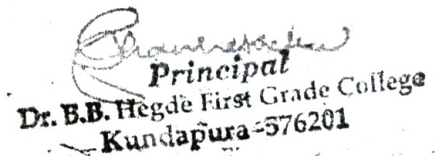 Principal
Dr. B.B. Hegde First Grade College
Kundapura-576201